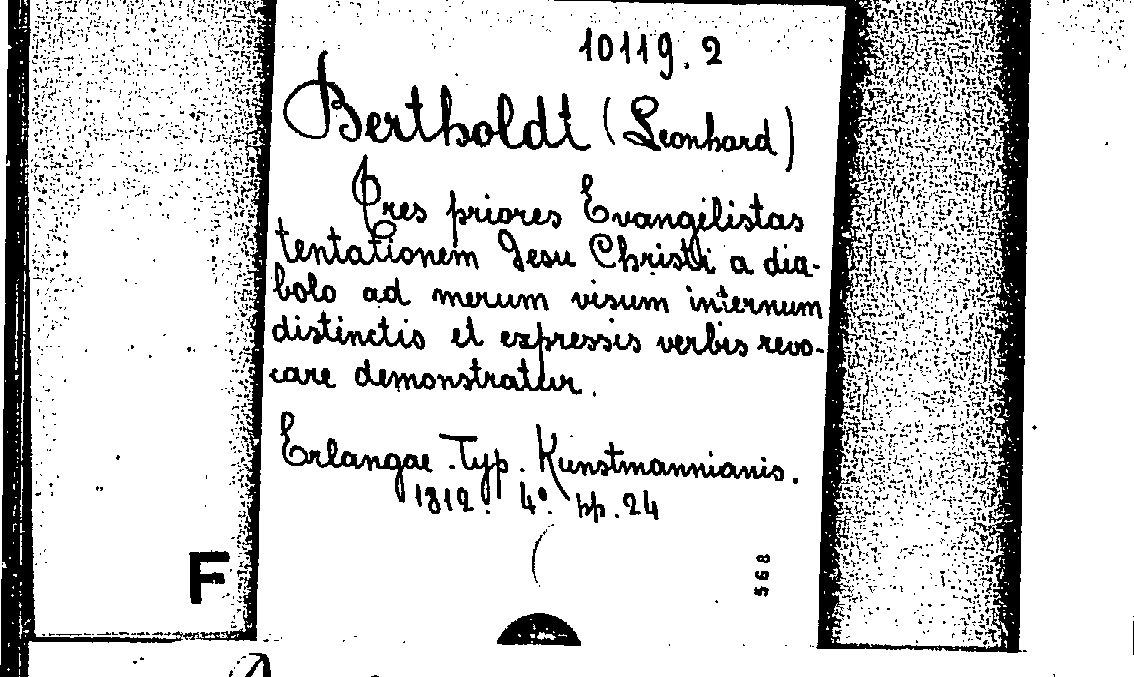 10119.2
Bertholdt (Leonhard)
Tres priores Evangelistas
tentationem Jesu Christi a dia-
bolo ad merum visum internum
distinctis et expressis verbis revo-
care demonstratur.
Erlangae. Typ. Kunstmannianis.
1812. 4°. pp. 24
568
F